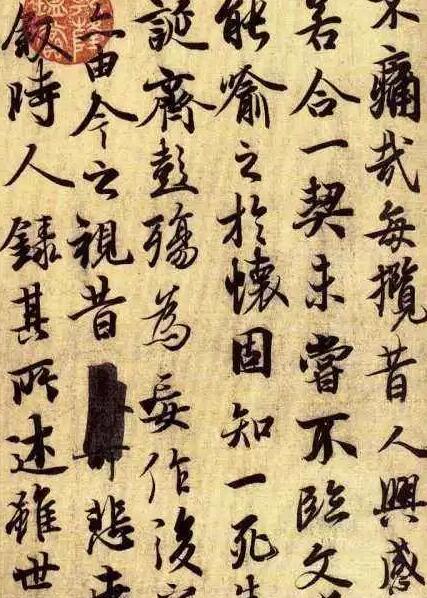 不痛哉每攬昔人興感
若合一契未嘗不臨文
能喻之於懷固知一死生
誕齊彭殤為妄作後
亦由今之視昔悲夫
敘時人錄其所述雖世